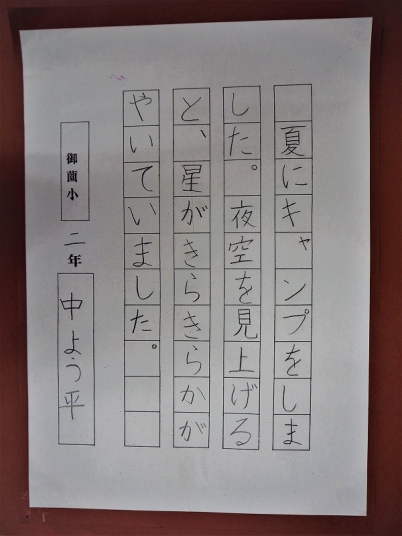 夏にキャンプをしま
した。夜空を見上げる
と、星がきらきらかが
やいていました。
御薗小 二年 中よう平